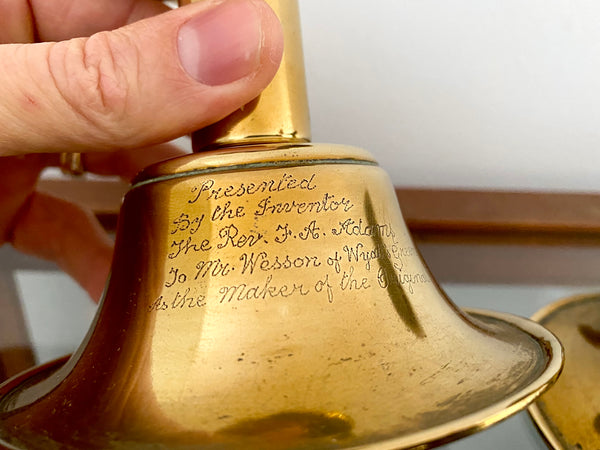 Presented
By the Inventor
The Rev. F. A. Adams
To Mr. Wesson of
As the Maker of the